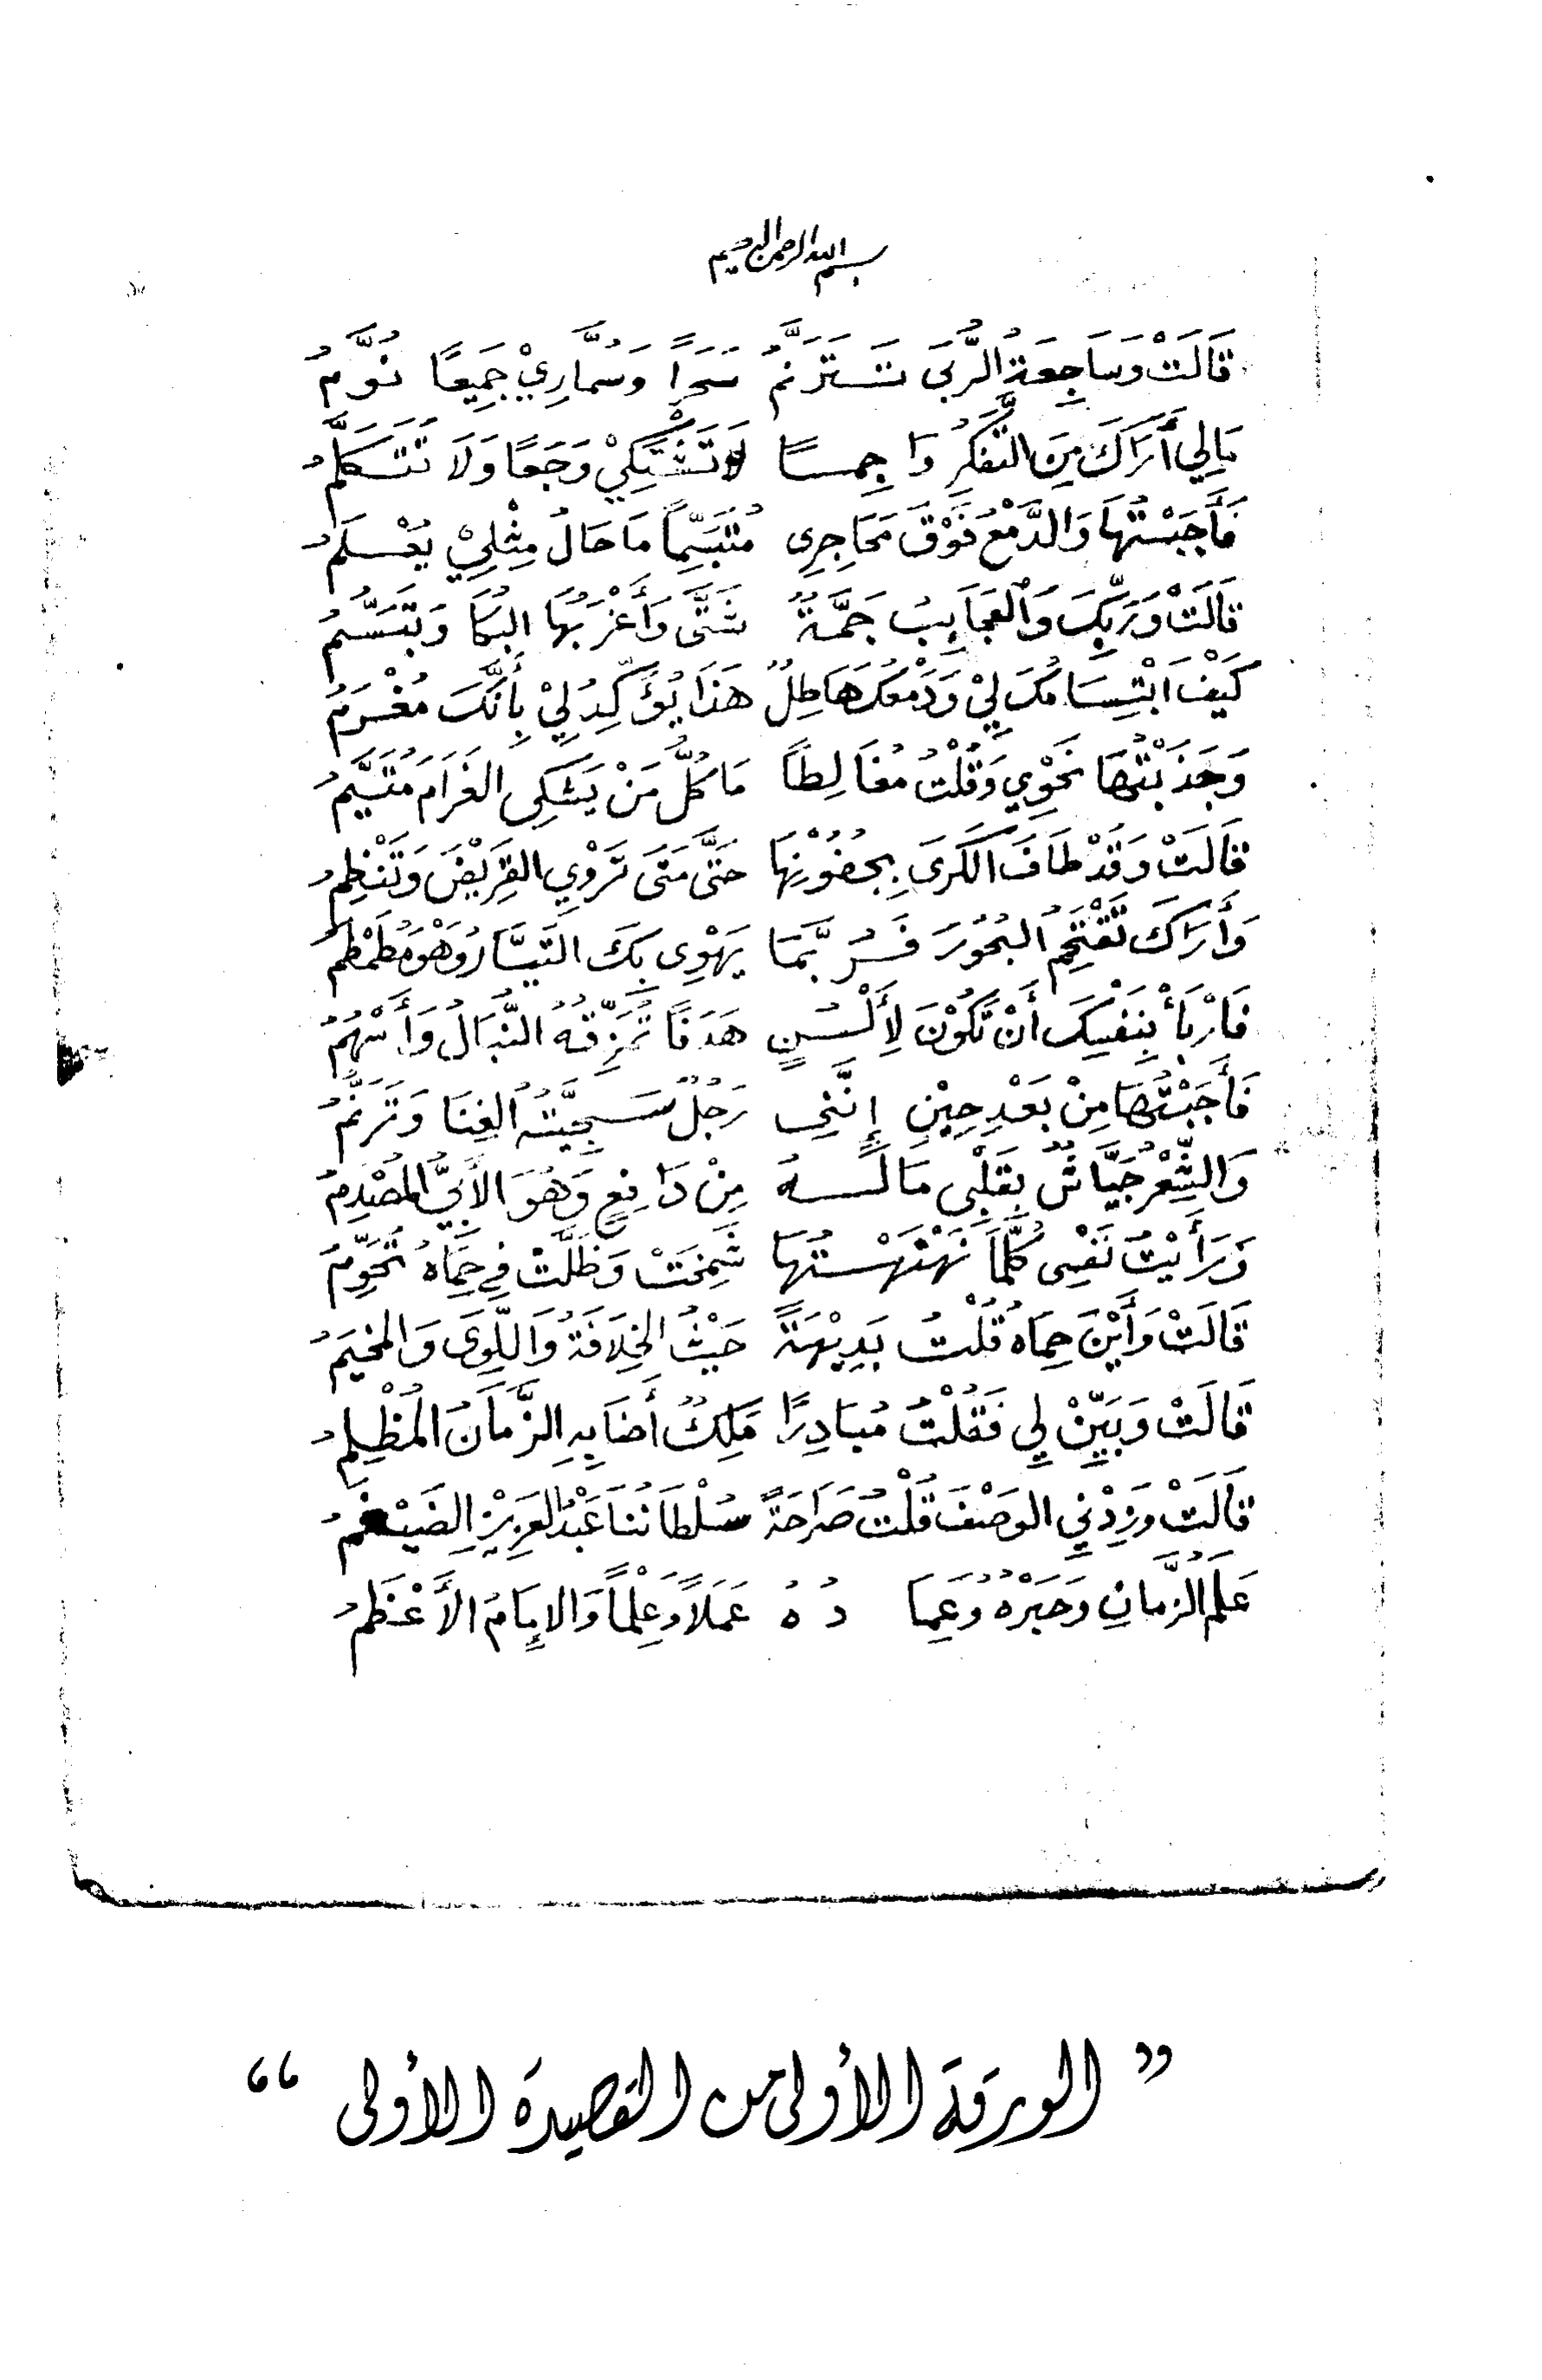 بسم الله الرحمن الرحيم
قَالَتْ وَسَاجِعَةُ الرُّبَى تَتَرَنَّمُ سَحَراً وَسُمَّارِيْ جَمِيعًا نُوَّمُ
مَالِي أَرَاكَ مِنَ التَّفَكُّرِ وَاجِمـًا لَا تَشْتَكِيْ وَجَعًا وَلَا تَتَكَلَّمُ
فَأَجَبْتُهَا وَالدَّمْعُ فَوْقَ مَحَاجِرِي مُتَبَسِّمًا مَا حَالُ مِثْلِيْ يُعْلَمُ
قَالَتْ وَرَبِّكَ وَالْعَجَايِبُ جَمَّةٌ شَتَّى وَأَغْرَبُهَا البُكَا وَتَبَسُّمُ
كَيْفَ ابْتِسَامُكَ لِيْ وَدَمْعُكَ هَاطِلٌ هَذَا يُؤَكِّدُ لِيْ بِأَنَّكَ مُغْرَمُ
وَجَذَبْتُهَا نَحْوِي وَقُلْتُ مُغَالِطًا مَا كُلُّ مَنْ يَشْكِي الغَرَامَ مُتَيَّمُ
قَالَتْ وَقَدْ طَافَ الكَرَى بِجُفُوْنِهَا حَتَّى مَتَى تَرْوِي القَرِيْضَ وَتَنْظِمُ
وَأَرَاكَ تَقْتَحِمُ البُحُوْرَ فَرُبَّمَا يَهْوِي بِكَ التَيَّارُ وَهْوَ مُطَمْطِمُ
فَارْبَأْ بِنَفْسِكَ أَنْ تَكُوْنَ لِأَلْسُنٍ هَدَفًا تُمَزِّقُهُ النِّبَالُ وَأَسْهُمُ
فَأَجَبْتُهَا مِنْ بَعْدِ حِيْنٍ إِنَّنِي رَجُلٌ سَجِيَّتُهُ الغِنَا وَتَرَنُّمُ
وَالشِّعْرُ جَيَّاشٌ بِقَلْبِي مَا لَهُ مِنْ دَافِعٍ وَهُوَ الأَبِيُّ المُصْدِمُ
وَرَأَيْتُ نَفْسِي كُلَّمَا نَهْنَهْتُهَا شَمِخَتْ وَظَلَّتْ فِي حِمَاهُ تُحَوِّمُ
قَالَتْ وَأَيْنَ حِمَاهُ قُلْتُ بَدِيْهَةً حَيْثُ الخِلَافَةُ وَاللِّوَى وَالمخيَمُ
قَالَتْ وَبَيِّنْ لِي فَقُلْتُ مُبَادِرًا مَلِكٌ أَضَا بِهِ الزَّمَانُ المُظْلِمُ
قَالَتْ وَزِدْنِي الوَصْفَ قُلْتُ صَرَاحَةً سُلْطَانُنَا عَبْدُ العَزِيْزِ الضَيْغَمُ
عَلَمُ الزَّمَانِ وَحَبْرُهُ وَعِمَا دُهُ عَمَلًا وَعِلْماً وَالإِمَامُ الأَعْظَمُ
”الورقة الأولى من القصيدة الأولى“